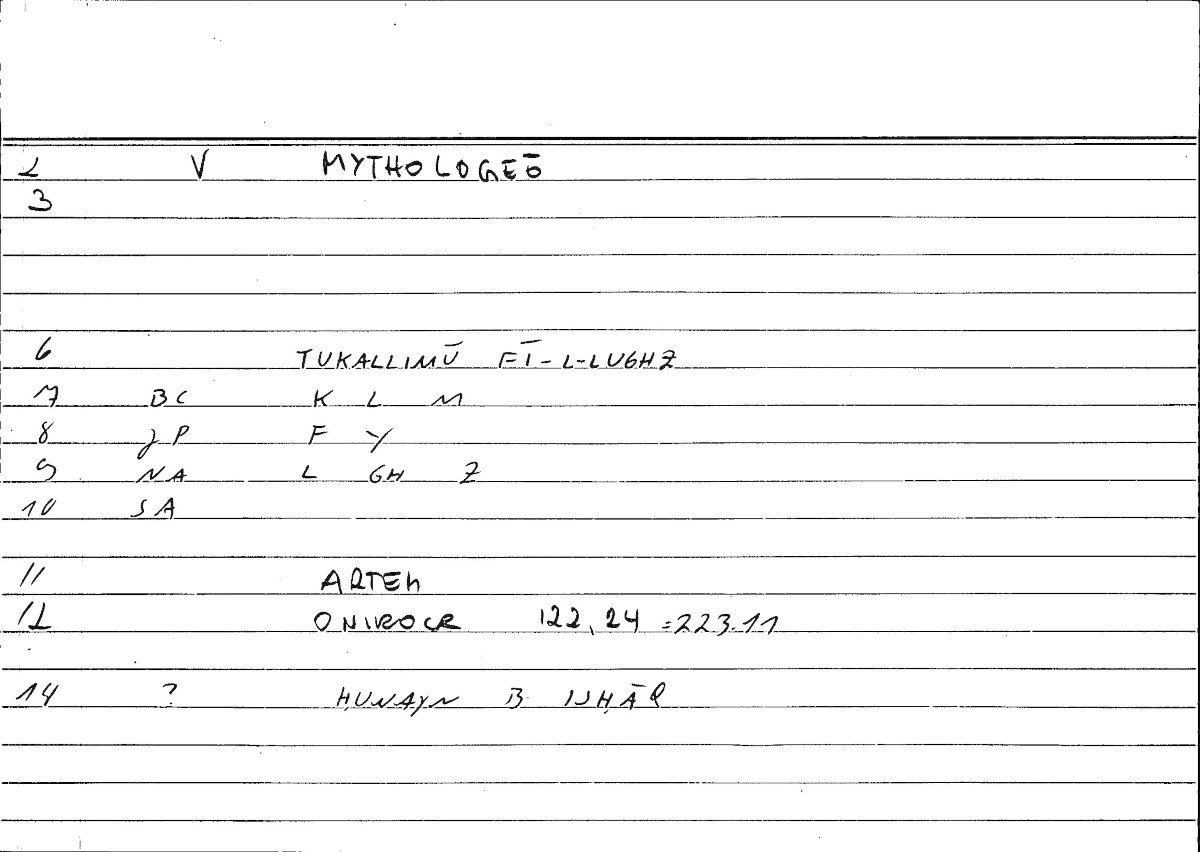 2 V MYTHOLOGEŌ
3
6 TUKALLIMŪ FĪ-L-LUGHZ
7 BC K L M
8 JP F Y
9 NA L GH Z
10 SA
11 ARTEM
12 ONIROCR 122,24 =223.11
14 ? ḤUNAYN B ISḤĀQ